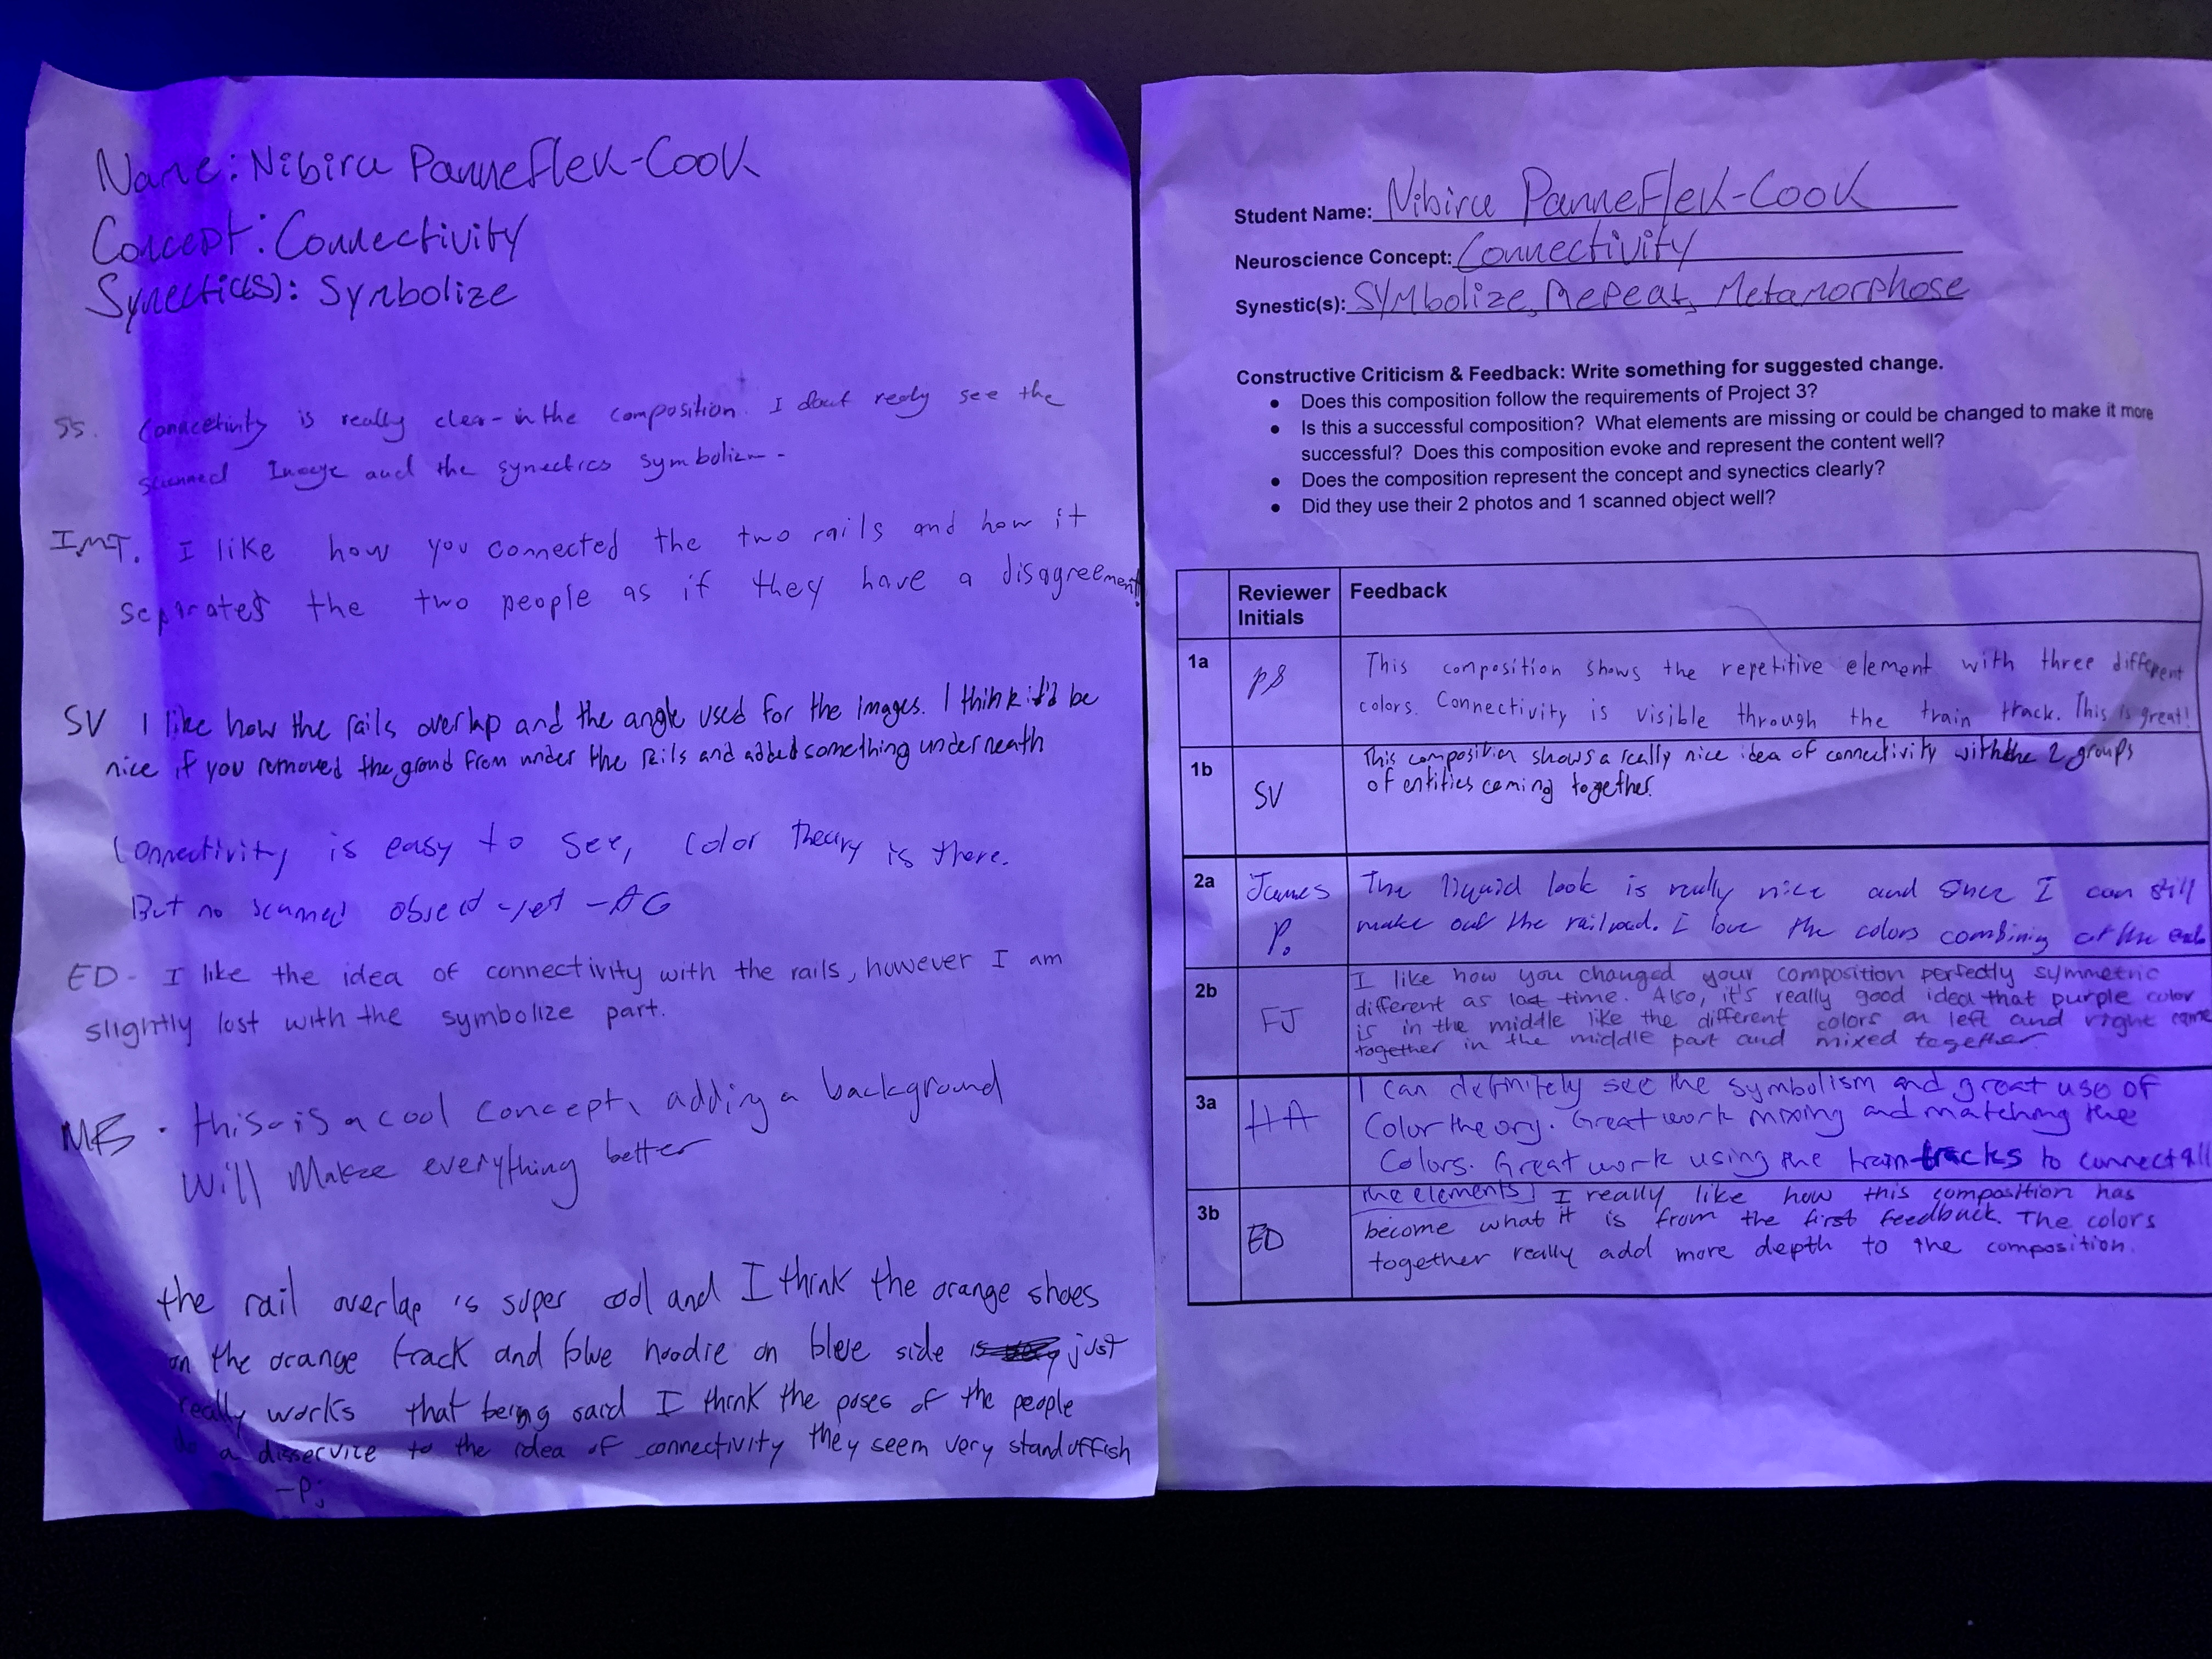 Name: Nibiru Panneflek-Cook
Concept: Connectivity
Synectic(s): Symbolize
SS. Connectivity is really clear in the composition. I dont really see the
scanned Image and the synectics symbolizm.
IMT. I like how you connected the two rails and how it
separates the two people as if they have a disagreement!
SV I like how the rails overlap and the angle used for the images. I think it'd be
nice if you removed the ground from under the rails and added something underneath
Connectivity is easy to see, color theory is there.
But no scanned object yet -AG
ED- I like the idea of connectivity with the rails, however I am
slightly lost with the symbolize part.
MB. this is a cool concept, adding a background
Will Make everything better
the rail overlap is super cool and I think the orange shoes
on the orange track and blue hoodie on blue side is just
really works that being said I think the poses of the people
do a disservice to the idea of connectivity they seem very standoffish
-PJ
Student Name: Nibiru Panneflek-Cook
Neuroscience Concept: Connectivity
Synestic(s): Symbolize, Repeat, Metamorphose
Constructive Criticism & Feedback: Write something for suggested change.
● Does this composition follow the requirements of Project 3?
● Is this a successful composition? What elements are missing or could be changed to make it more
successful? Does this composition evoke and represent the content well?
● Does the composition represent the concept and synectics clearly?
● Did they use their 2 photos and 1 scanned object well?
Reviewer Initials Feedback
1a PS This composition shows the repetitive element with three different
colors. Connectivity is visible through the train track. This is great!
1b SV This composition shows a really nice idea of connectivity with the 2 groups
of entities coming together.
2a James P. The liquid look is really nice and since I can still
make out the railroad. I love the colors combining at the end
2b FJ I like how you changed your composition perfectly symmetric
different as last time. Also, it's really good idea that purple color
is in the middle like the different colors on left and right came
together in the middle part and mixed together.
3a HA I can definitely see the symbolism and great use of
Color theory. Great work mixing and matching the
Colors. Great work using the train tracks to connect all
the elements
3b ED I really like how this composition has
become what it is from the first feedback. The colors
together really add more depth to the composition.